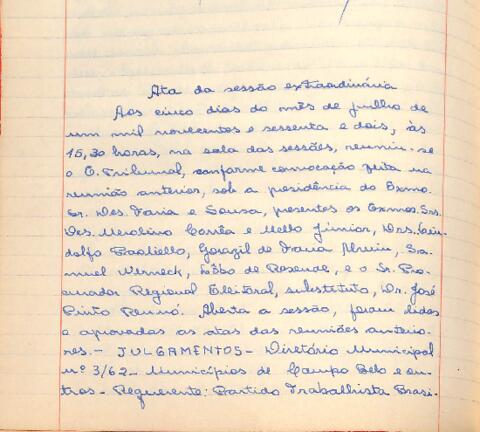 Ata da sessão extraordinária
Aos cinco dias do mês de julho de
um mil novecentos e sessenta e dois, às
15,30 horas, na sala das sessões, reuniu-se
o E. Tribunal, conforme convocação feita na
reunião anterior, sob a presidência do Exmo.
Sr. Des. Faria e Sousa, presentes os Exmos. Srs.
Des. Merolino Corrêa e Mello Júnior, Drs. Lin-
dolfo Paoliello, Gorazil de Faria Alvim, Sa-
muel Werneck, Lôbo de Resende, e o Sr. Pro-
curador Regional Eleitoral, substituto, Dr. José
Pinto Renó. Aberta a sessão, foram lidas
e aprovadas as atas das reuniões anterio-
res. - JULGAMENTOS - Diretório Municipal
nº 3/62 - Municípios de Campo Belo e ou-
tros - Requerente: Partido Trabalhista Brasi-